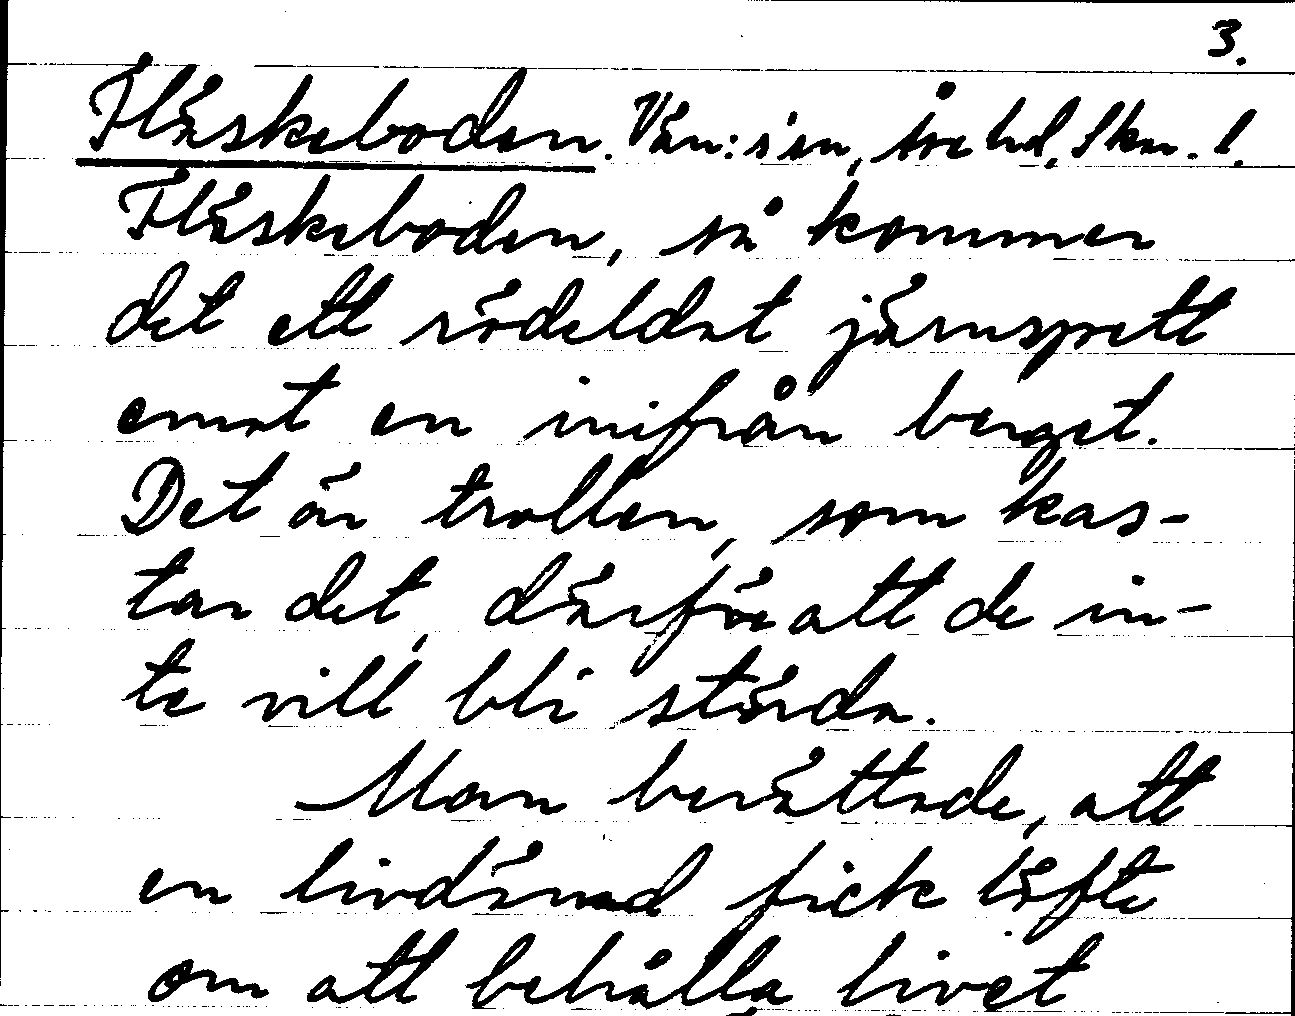 3.
Fläskeboden. Vän:s sn, Åse hd, Skar. l.
Fläskeboden, så kommer
det ett rödeldat järnspett
emot en inifrån berget.
Det är trollen, som kas-
tar det, därför att de in-
te vill bli störda.
Man berättade, att
en livdömd fick löfte
om att behålla livet